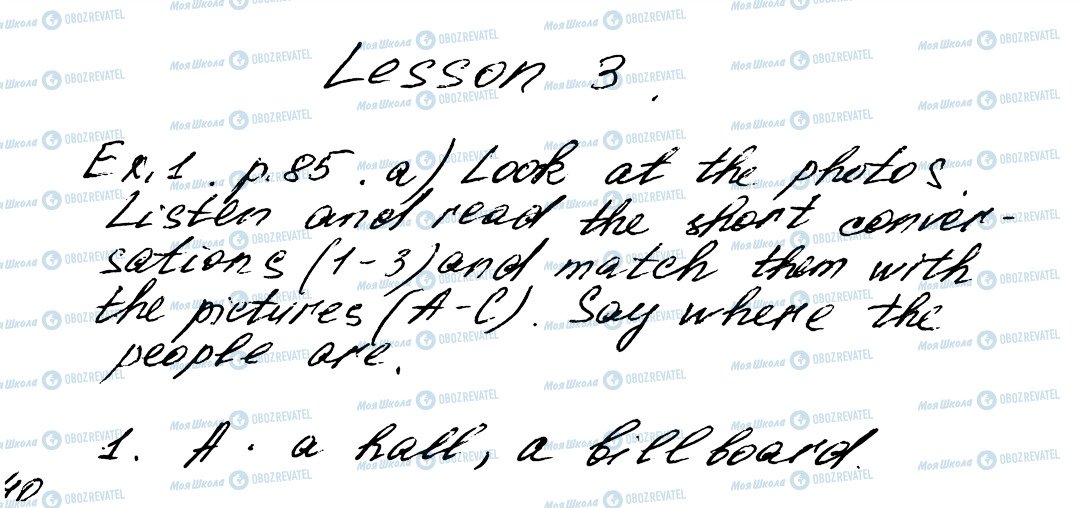 Lesson 3.
Ex.1. p.85. a) Look at the photos.
Listen and read the short conver-
sations (1-3) and match them with
the pictures (A-C). Say where the
people are.
1. A. a hall, a billboard.
40